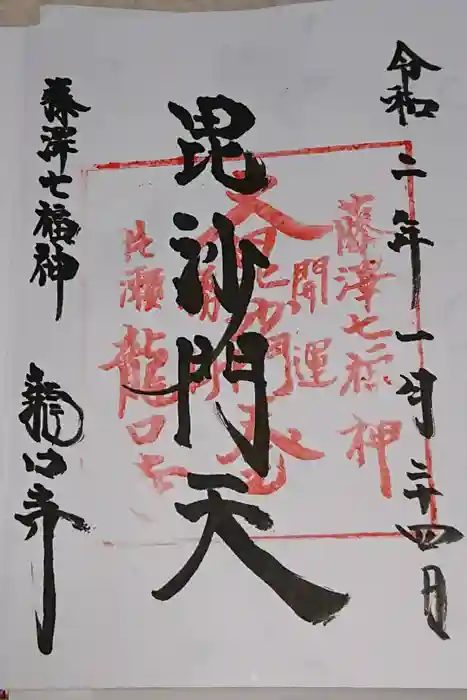 令和二年一月二十四日
毘沙門天
藤澤七福神
龍口寺
藤澤七福神
開運
片瀬
龍口寺